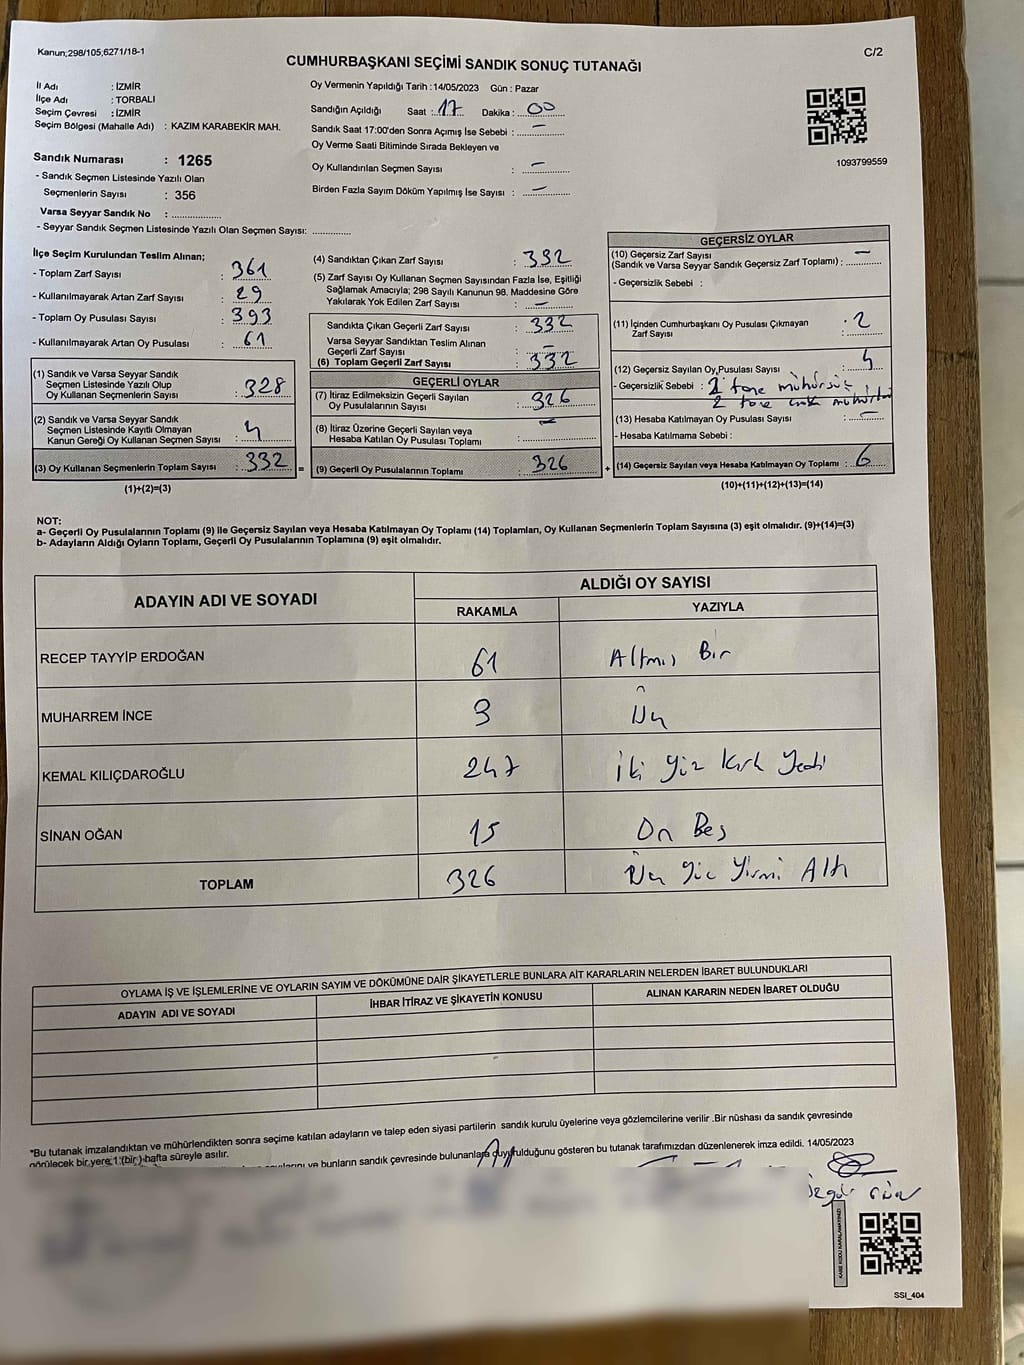 Kanun;298/105;6271/18-1
C/2
CUMHURBAŞKANI SEÇİMİ SANDIK SONUÇ TUTANAĞI
İl Adı : İZMİR
İlçe Adı : TORBALI
Seçim Çevresi : İZMİR
Seçim Bölgesi (Mahalle Adı) : KAZIM KARABEKİR MAH.
Sandık Numarası : 1265
- Sandık Seçmen Listesinde Yazılı Olan
Seçmenlerin Sayısı : 356
Varsa Seyyar Sandık No : ................
- Seyyar Sandık Seçmen Listesinde Yazılı Olan Seçmen Sayısı: .............
Oy Vermenin Yapıldığı Tarih : 14/05/2023 Gün : Pazar
Sandığın Açıldığı Saat : 17 Dakika : 00
Sandık Saat 17:00'den Sonra Açımış İse Sebebi : —
Oy Verme Saati Bitiminde Sırada Bekleyen ve
Oy Kullandırılan Seçmen Sayısı : —
Birden Fazla Sayım Döküm Yapılmış İse Sayısı : —
1093799559
İlçe Seçim Kurulundan Teslim Alınan;
- Toplam Zarf Sayısı : 361
- Kullanılmayarak Artan Zarf Sayısı : 29
- Toplam Oy Pusulası Sayısı : 393
- Kullanılmayarak Artan Oy Pusulası : 61
(1) Sandık ve Varsa Seyyar Sandık
Seçmen Listesinde Yazılı Olup
Oy Kullanan Seçmenlerin Sayısı : 328
(2) Sandık ve Varsa Seyyar Sandık
Seçmen Listesinde Kayıtlı Olmayan
Kanun Gereği Oy Kullanan Seçmen Sayısı : 4
(3) Oy Kullanan Seçmenlerin Toplam Sayısı : 332
(1)+(2)=(3)
(4) Sandıktan Çıkan Zarf Sayısı : 332
(5) Zarf Sayısı Oy Kullanan Seçmen Sayısından Fazla İse, Eşitliği
Sağlamak Amacıyla; 298 Sayılı Kanunun 98. Maddesine Göre
Yakılarak Yok Edilen Zarf Sayısı : —
Sandıkta Çıkan Geçerli Zarf Sayısı : 332
Varsa Seyyar Sandıktan Teslim Alınan
Geçerli Zarf Sayısı : —
(6) Toplam Geçerli Zarf Sayısı : 332
GEÇERLİ OYLAR
(7) İtiraz Edilmeksizin Geçerli Sayılan
Oy Pusulalarının Sayısı : 326
(8) İtiraz Üzerine Geçerli Sayılan veya
Hesaba Katılan Oy Pusulası Toplamı : —
(9) Geçerli Oy Pusulalarının Toplamı : 326
GEÇERSİZ OYLAR
(10) Geçersiz Zarf Sayısı
(Sandık ve Varsa Seyyar Sandık Geçersiz Zarf Toplamı) : —
- Geçersizlik Sebebi :
(11) İçinden Cumhurbaşkanı Oy Pusulası Çıkmayan
Zarf Sayısı : 2
(12) Geçersiz Sayılan Oy Pusulası Sayısı : 4
- Geçersizlik Sebebi : 2 tane mühürsüz
2 tane
(13) Hesaba Katılmayan Oy Pusulası Sayısı : —
- Hesaba Katılmama Sebebi :
(14) Geçersiz Sayılan veya Hesaba Katılmayan Oy Toplamı : 6
(10)+(11)+(12)+(13)=(14)
NOT:
a- Geçerli Oy Pusulalarının Toplamı (9) ile Geçersiz Sayılan veya Hesaba Katılmayan Oy Toplamı (14) Toplamları, Oy Kullanan Seçmenlerin Toplam Sayısına (3) eşit olmalıdır. (9)+(14)=(3)
b- Adayların Aldığı Oyların Toplamı, Geçerli Oy Pusulalarının Toplamına (9) eşit olmalıdır.
ADAYIN ADI VE SOYADI
ALDIĞI OY SAYISI
RAKAMLA YAZIYLA
RECEP TAYYİP ERDOĞAN 61 Altmış Bir
MUHARREM İNCE 3 Üç
KEMAL KILIÇDAROĞLU 247 İki Yüz Kırk Yedi
SİNAN OĞAN 15 On Beş
TOPLAM 326 Üç Yüz Yirmi Altı
OYLAMA İŞ VE İŞLEMLERİNE VE OYLARIN SAYIM VE DÖKÜMÜNE DAİR ŞİKAYETLERLE BUNLARA AİT KARARLARIN NELERDEN İBARET BULUNDUKLARI
ADAYIN ADI VE SOYADI İHBAR İTİRAZ VE ŞİKAYETİN KONUSU ALINAN KARARIN NEDEN İBARET OLDUĞU
*Bu tutanak imzalandıktan ve mühürlendikten sonra seçime katılan adayların ve talep eden siyasi partilerin sandık kurulu üyelerine veya gözlemcilerine verilir .Bir nüshası da sandık çevresinde
görülecek bir yere 1 (bir) hafta süreyle asılır.
ve bunların sandık çevresinde bulunanlara duyurulduğunu gösteren bu tutanak tarafımızdan düzenlenerek imza edildi. 14/05/2023
SSI_404